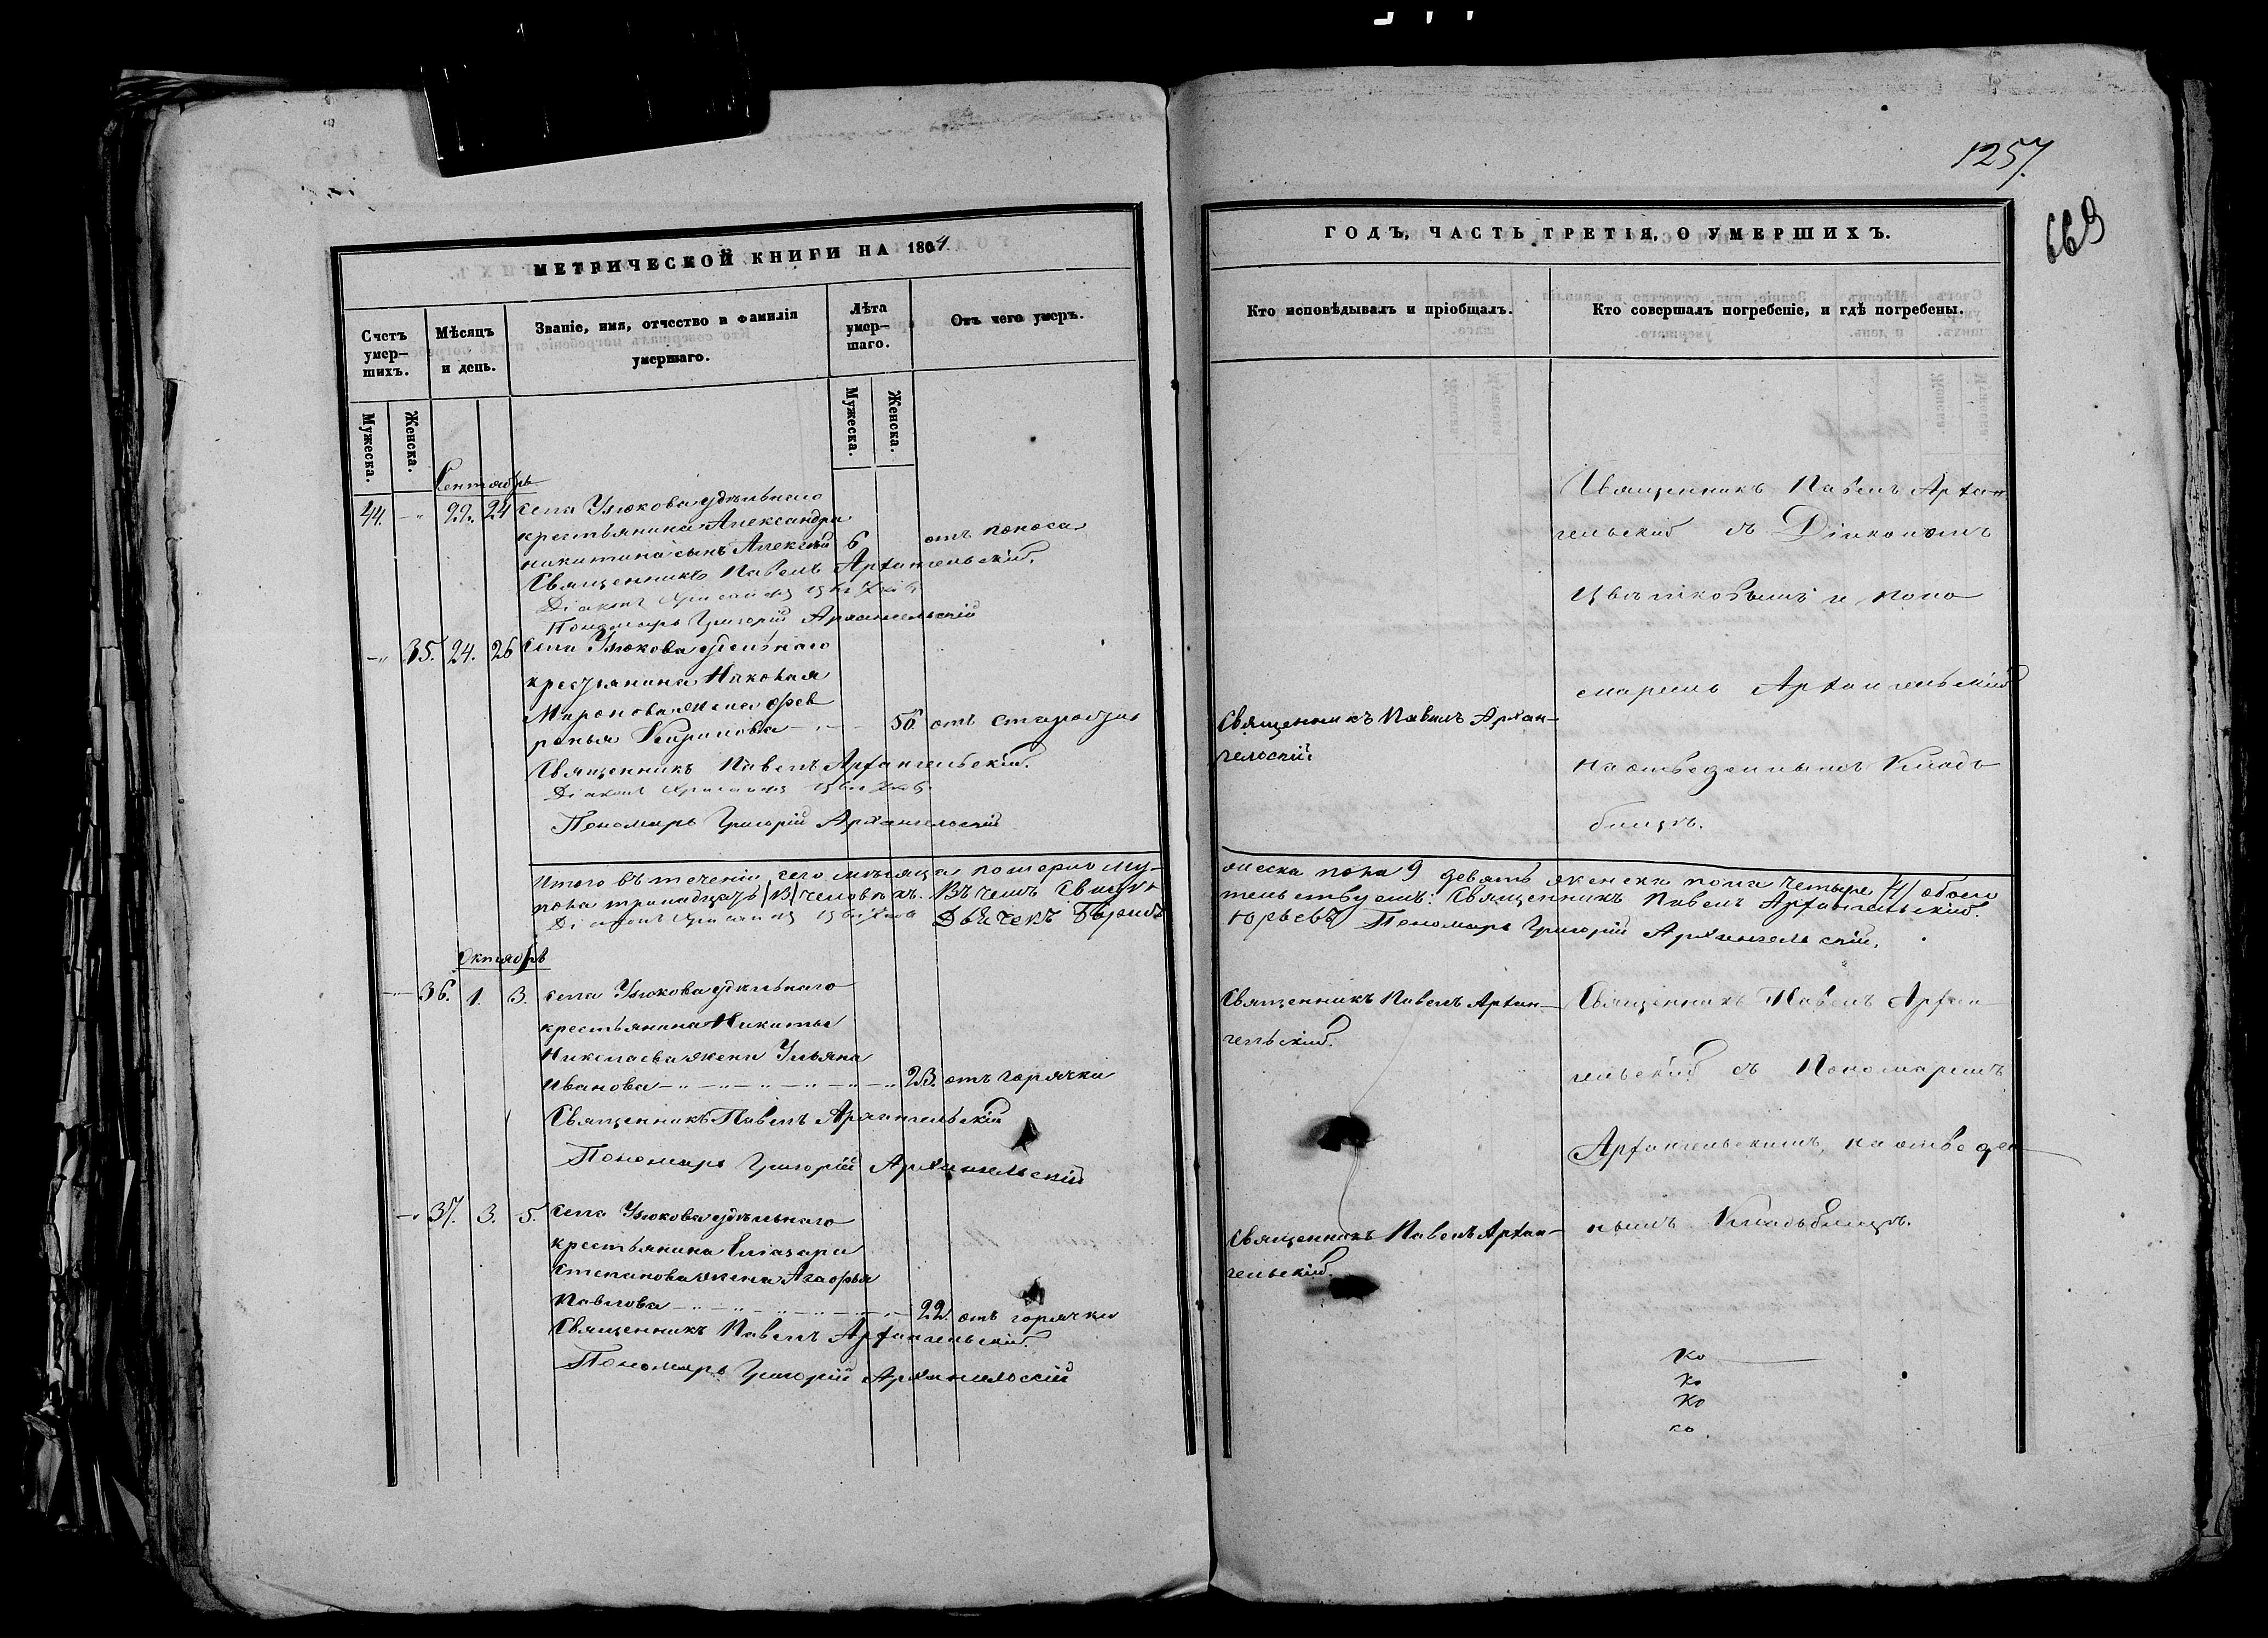 1257.
669
МЕТРИЧЕСКОЙ КНИГИ НА 1864.
Счетъ умер-шихъ.
Мѣсяцъ и день.
Званіе, имя, отчество и фамилія умершаго.
Лѣта умер-шаго.
Отъ чего умеръ.
Мужеска.
Женска.
Мужеска.
Женска.
Сентябрь
44. 22. 24 Села Улюкова удѣльнаго
крестьянина Александра
никитина сынъ Алексѣй 6 отъ поноса
Священникъ Павелъ Архангельскій.
Діаконъ
Пономарь Григорій Архангельскій
35. 24. 26 Села Улюкова удѣльнаго
крестьянина Николая
Миронова жена Фев
ронья 50. отъ старости
Священникъ Павелъ Архангельскій.
Діаконъ
Пономарь Григорій Архангельскій
Итого въ теченіи сего мѣсяца померло му-
пола тринадцать /13/ человѣкъ. Въ чемъ свидѣ-
Діаконъ Дьячекъ
Октябрь
36. 1. 3. Села Улюкова удѣльнаго
крестьянина Никиты
Николаева жена Ульяна
Иванова 23. отъ горячки
Священникъ Павелъ Архангельскій
Пономарь Григорій Архангельскій
37. 3. 5. Села Улюкова удѣльнаго
крестьянина Елизара
Степанова жена Агафья
Павлова 22. отъ горячки
Священникъ Павелъ Архангельскій.
Пономарь Григорій Архангельскій
ГОДЪ, ЧАСТЬ ТРЕТІЯ, О УМЕРШИХЪ.
Кто исповѣдывалъ и пріобщалъ.
Кто совершалъ погребеніе, и гдѣ погребены.
Священникъ Павелъ Архан-
гельскій съ Діакономъ
Цвѣтковымъ и поно
маремъ Архангельскимъ
Священникъ Павелъ Архан-
гельскій
на отведенномъ Клад
бищѣ.
жеска пола 9 девять женска пола четыре /4/ обоего
тельствуетъ: Священникъ Павелъ Архангельскій.
Юрьевъ Пономарь Григорій Архангельскій.
Священникъ Павелъ Архан-
гельскій.
Священникъ Павелъ Архан
гельскій съ Пономаремъ
Архангельскимъ, на отведен
номъ Кладбищѣ.
Священникъ Павелъ Архан-
гельскій.
Ко
Ко
Ко
ко